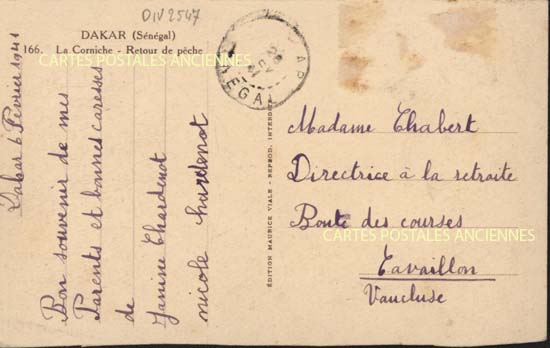 DIV 2547
DAKAR (Sénégal)
166. La Corniche - Retour de pêche
CARTES POSTALES ANCIENNES
Dakar 6 Février 1941
Bon souvenir de mes
Parents et bonnes caresses
de
Janine Chardenot
nicole
ÉDITION MAURICE VIALE - REPROD. INTERDITE
Madame Chabert
Directrice à la retraite
Route des courses
CARTES POSTALES ANCIENNES
Cavaillon
Vaucluse